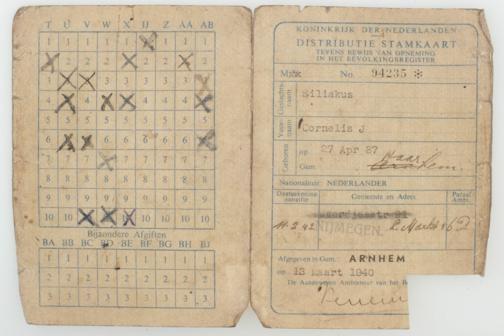 T U V W X IJ Z AA AB
1 1 1 1 1 1 1 1
2 2 2 2 2 2 2
3 3 3 3 3 3
4 4 4 4 4
5 5 5 5 5 5 5 5 5
6 6 6 6 6 6
7 7 7 7 7 7 7 7
8 8 8 8 8 8 8 8 8
9 9 9 9 9 9 9 9 9
10 10 10 10 10 10
Bijzondere Afgiften
BA BB BC BD BE BF BG BH BJ
1 1 1 1 1 1 1 1 1
2 2 2 2 2 2 2 2 2
3 3 3 3 3 3 3 3 3
KONINKRIJK DER NEDERLANDEN
DISTRIBUTIE STAMKAART
TEVENS BEWIJS VAN OPNEMING
IN HET BEVOLKINGSREGISTER
No. 94235 *
Geslachtsnaam
Siliakus
Voornaam
Cornelis J
Geboren op 27 Apr 87
Gem.
Nationaliteit: NEDERLANDER
Dagteekening aangifte
Gemeente en Adres
Paraaf Ambt.
NIJMEGEN.
Afgegeven in Gem.: ARNHEM
op 13 Maart 1940
De Aangewezen Ambtenaar van het